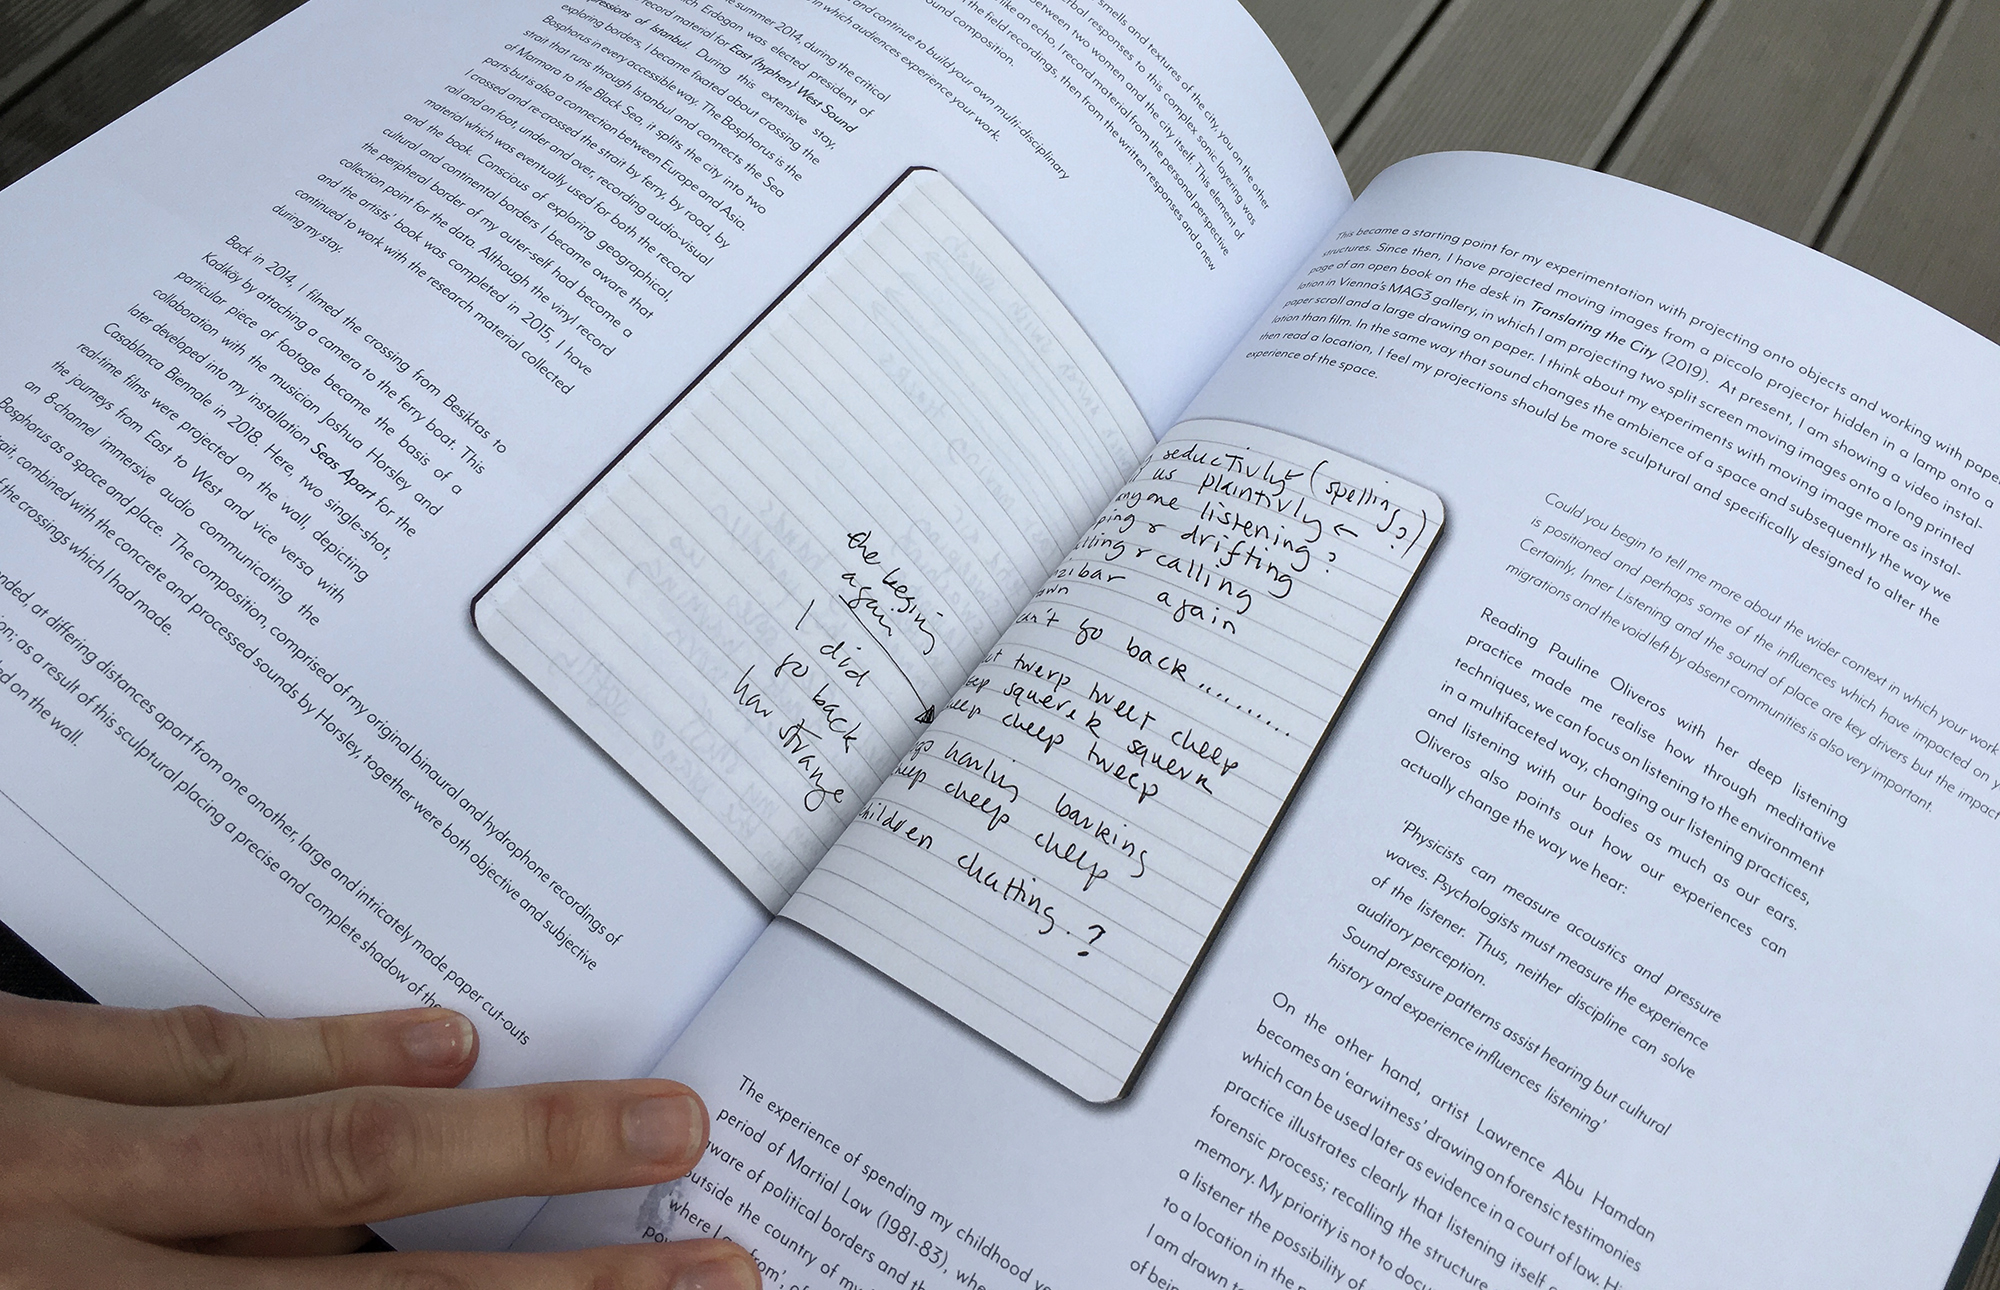 smells and textures of the city, you on the other
verbal responses to this complex sonic layering was
between two women and the city itself. This element of
like an echo, I record material from the personal perspective
the field recordings, then from the written responses and a new
sound composition.
and continue to build your own multi-disciplinary
in which audiences experience your work.
summer 2014, during the critical
Erdogan was elected president of
record material for East (hyphen) West Sound
Impressions of Istanbul. During this extensive stay,
exploring borders, I became fixated about crossing the
Bosphorus in every accessible way. The Bosphorus is the
strait that runs through Istanbul and connects the Sea
of Marmara to the Black Sea, it splits the city into two
parts but is also a connection between Europe and Asia.
I crossed and re-crossed the strait by ferry, by road, by
rail and on foot, under and over, recording audio-visual
material which was eventually used for both the record
and the book. Conscious of exploring geographical,
cultural and continental borders I became aware that
the peripheral border of my outer-self had become a
collection point for the data. Although the vinyl record
and the artists' book was completed in 2015, I have
continued to work with the research material collected
during my stay.
Back in 2014, I filmed the crossing from Besiktas to
Kadiköy by attaching a camera to the ferry boat. This
particular piece of footage became the basis of a
collaboration with the musician Joshua Horsley and
later developed into my installation Seas Apart for the
Casablanca Biennale in 2018. Here, two single-shot,
real-time films were projected on the wall, depicting
the journeys from East to West and vice versa with
an 8-channel immersive audio communicating the
Bosphorus as a space and place. The composition, comprised of my original binaural and hydrophone recordings of
combined with the concrete and processed sounds by Horsley, together were both objective and subjective
the crossings which I had made.
at differing distances apart from one another, large and intricately made paper cut-outs
as a result of this sculptural placing a precise and complete shadow of the
on the wall.
the begining
again
I did
go back
how strange
seductivly (spelling?)
us plaintivly ←
anyone listening?
& drifting
& calling
again
can't go back..........
twerp tweet cheep
squeek squeek
cheep tweep
barking
cheep cheep
children chatting. ?
The experience of spending my childhood
period of Martial Law (1981-83),
aware of political borders and
outside the country of my
where I am from',
This became a starting point for my experimentation with projecting onto objects and working with paper
structures. Since then, I have projected moving images from a piccolo projector hidden in a lamp onto a
page of an open book on the desk in Translating the City (2019). At present, I am showing a video instal-
lation in Vienna's MAG3 gallery, in which I am projecting two split screen moving images onto a long printed
paper scroll and a large drawing on paper. I think about my experiments with moving image more as instal-
lation than film. In the same way that sound changes the ambience of a space and subsequently the way we
then read a location, I feel my projections should be more sculptural and specifically designed to alter the
experience of the space.
Could you begin to tell me more about the wider context in which your work
is positioned and perhaps some of the influences which have impacted on
Certainly, Inner Listening and the sound of place are key drivers but the impact
migrations and the void left by absent communities is also very important.
Reading Pauline Oliveros with her deep listening
practice made me realise how through meditative
techniques, we can focus on listening to the environment
in a multifaceted way, changing our listening practices,
and listening with our bodies as much as our ears.
Oliveros also points out how our experiences can
actually change the way we hear:
'Physicists can measure acoustics and pressure
waves. Psychologists must measure the experience
of the listener. Thus, neither discipline can solve
auditory perception.
Sound pressure patterns assist hearing but cultural
history and experience influences listening'
On the other hand, artist Lawrence Abu Hamdan
becomes an 'earwitness' drawing on forensic testimonies
which can be used later as evidence in a court of law.
practice illustrates clearly that listening itself
forensic process; recalling the structure
memory. My priority is not to
a listener the possibility of
to a location in the
I am drawn
of being